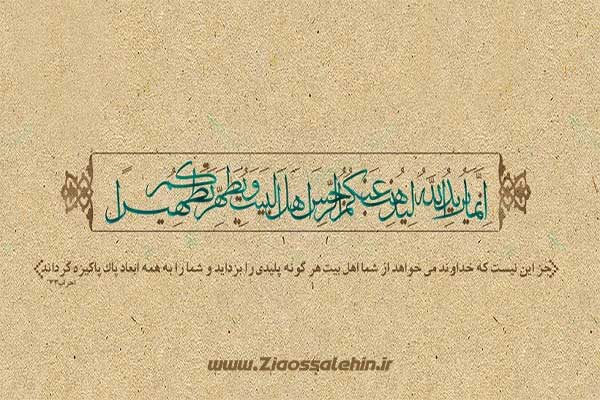 إنما يريد الله ليذهب عنكم الرجس أهل البيت و يطهركم تطهيرا
جز این نیست که خداوند می خواهد از شما اهل بیت هر گونه پلیدی را بزداید و شما را به همه ابعاد پاک پاکیزه گرداند
احزاب۳۳
www.Ziaossalehin.ir